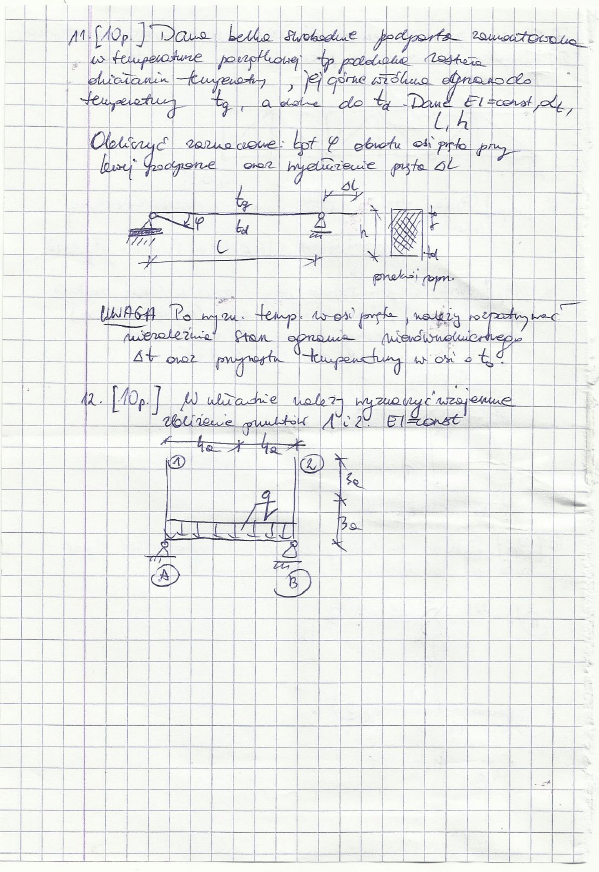 11. [10p.] Dana belka swobodnie podparta zamontowana
w temperaturze początkowej tp poddana została
działaniu temperatury, jej górne włókna ogrzano do
temperatury tg, a dolne do td. Dane EI=const, αt,
L, h
Obliczyć zaznaczone: kąt φ obrotu osi pręta przy
lewej podporze oraz wydłużenie pręta ΔL
ΔL
tg
φ
td
L
h
tg
td
przekrój poprz.
UWAGA Po wyzn. temp. w osi pręta, należy rozpatrywać
niezależnie stan ogrzania nierównomiernego
Δt oraz przyrostu temperatury w osi o t₀.
12. [10p.] W układzie należy wyznaczyć wzajemne
zbliżenie punktów 1 i 2. EI=const
4a 4a
1 2
3a
q
3a
A B